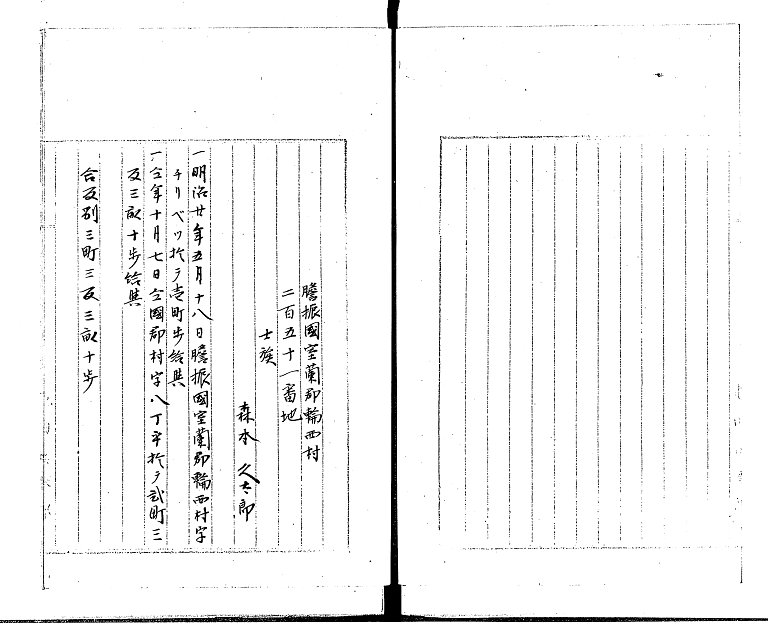 膽振國室蘭郡輪西村
二百五十一番地
士族
森本久太郎
一明治廿年五月十八日膽振國室蘭郡輪西村字
チリベツ於テ壱町步給與
一仝年十月七日仝國郡村字八丁平於テ弐町三
反三畝十步給與
合反別三町三反三畝十步